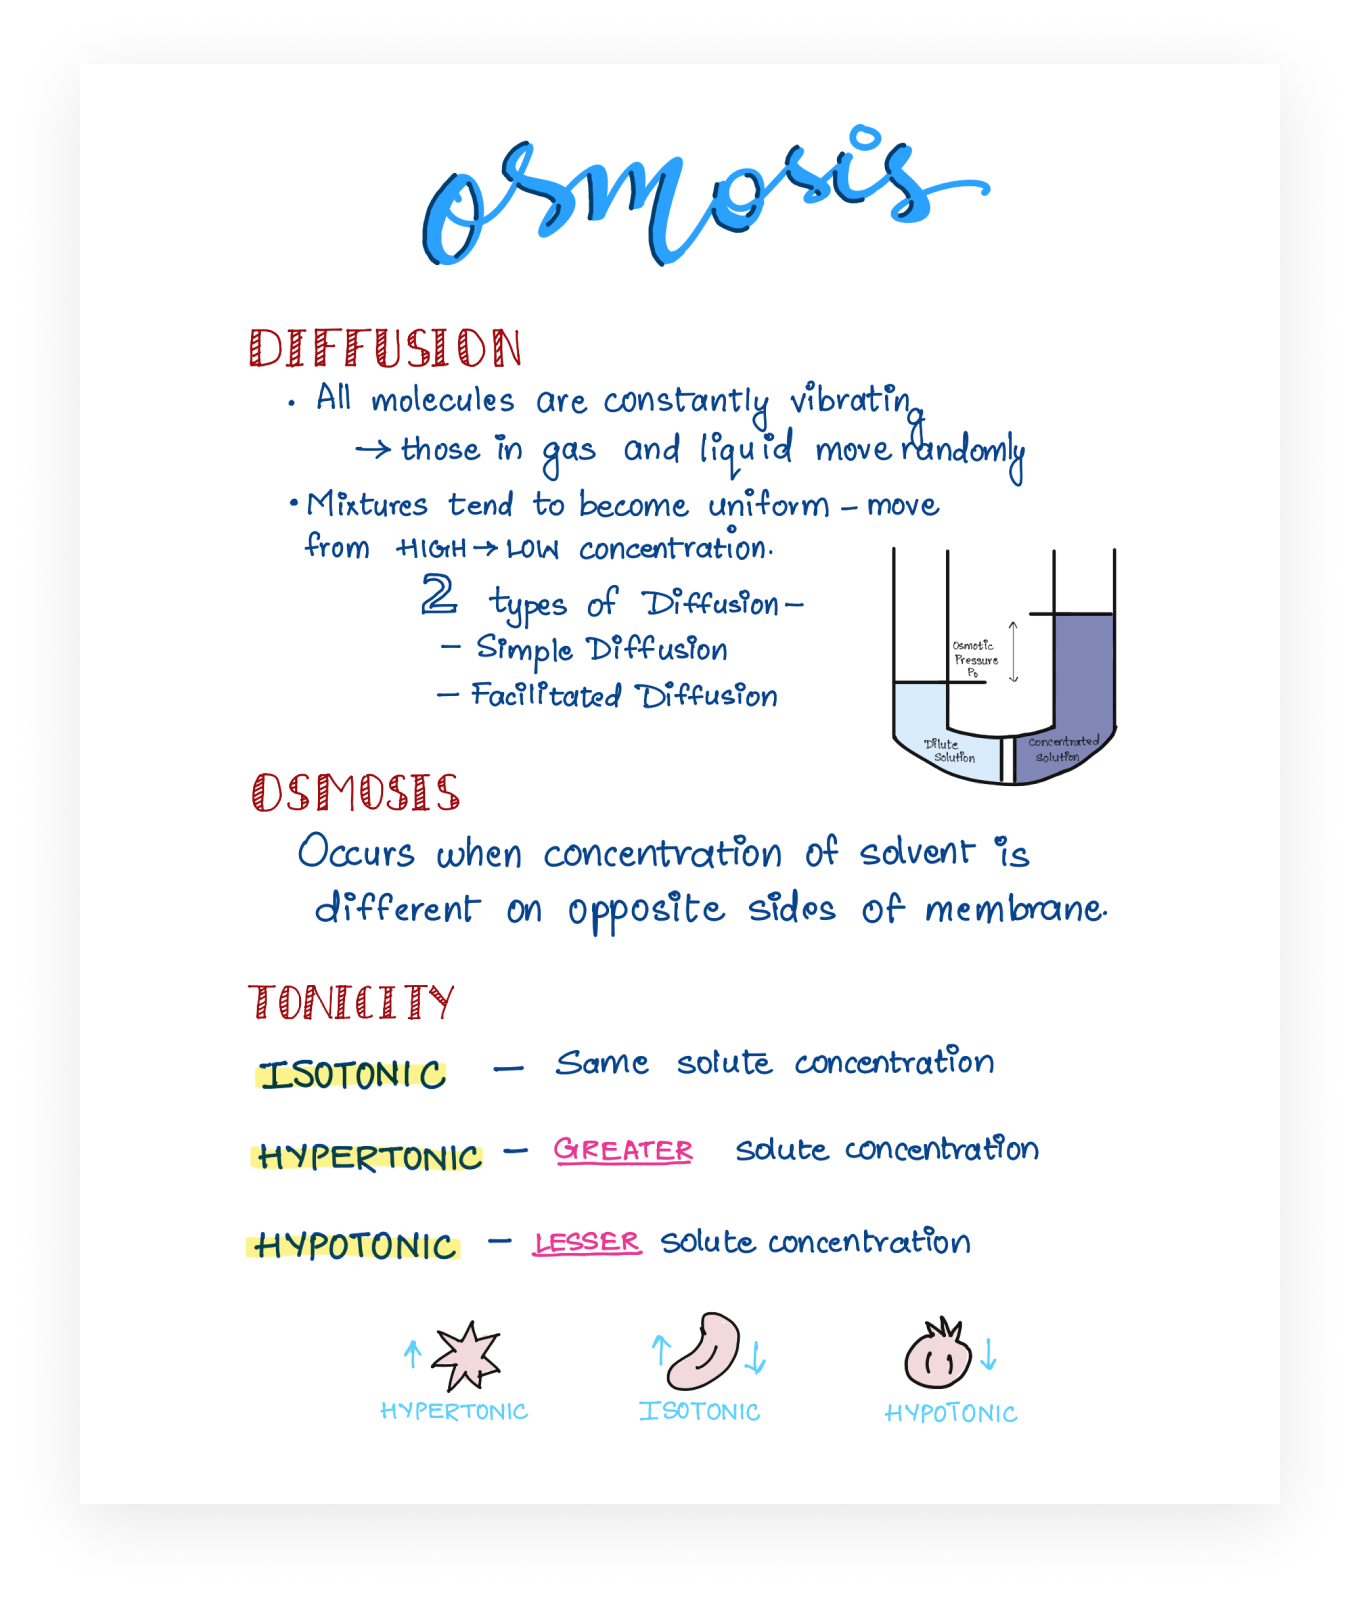 osmosis
DIFFUSION
• All molecules are constantly vibrating
→ those in gas and liquid move randomly
• Mixtures tend to become uniform – move
from HIGH → LOW concentration.
2 types of Diffusion –
– Simple Diffusion
– Facilitated Diffusion
Osmotic
Pressure
P₀
Dilute
Solution
Concentrated
Solution
OSMOSIS
Occurs when concentration of solvent is
different on opposite sides of membrane.
TONICITY
ISOTONIC – Same solute concentration
HYPERTONIC – GREATER solute concentration
HYPOTONIC – LESSER solute concentration
↑
HYPERTONIC
↑ ↓
ISOTONIC
↓
HYPOTONIC